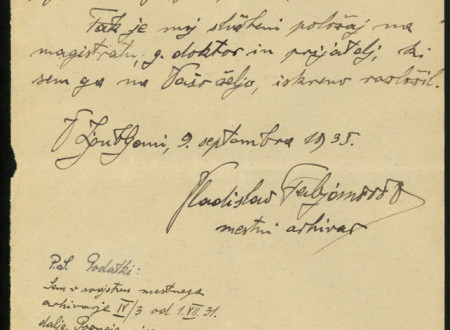 Tak je moj službeni položaj na
magistratu, g. doktor in prijatelj, ki
sem ga na Vašo željo, iskreno razložil.
V Ljubljani, 9. septembra 1935.
Vladislav Fabjančič
mestni arhivar
P.S. Podatki:
Sem v svojstvu mestnega
arhivarja IV/3 od 1.VII.31.
dalje.